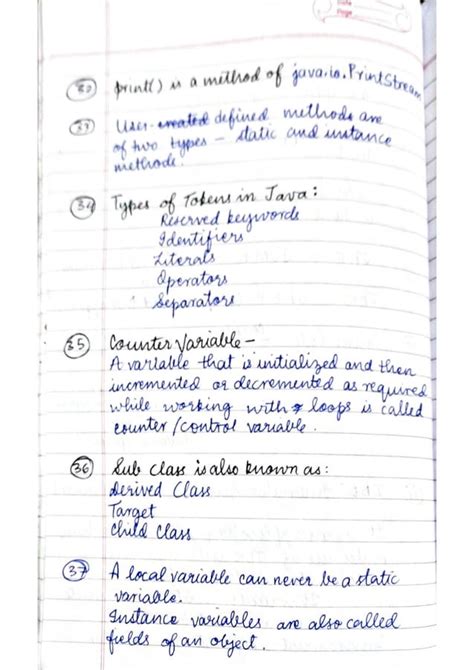 Date
Page
32 print() is a method of java.io.PrintStream
33 User-created defined methods are
of two types – static and instance
methode.
34 Types of Tokens in Java:
Reserved keywords
Identifiers
Literals
Operators
Separators
35 Counter Variable –
A variable that is initialized and then
incremented or decremented as required
while working with loops is called
counter/control variable.
36 Sub Class is also known as:
Derived Class
Target
Child Class
37 A local variable can never be a static
variable.
Instance variables are also called
fields of an object.